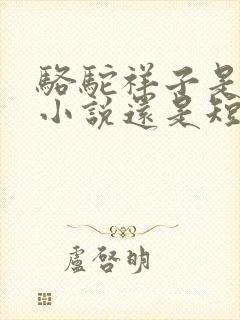 駱駝祥子是
小說還是短
盧啓明